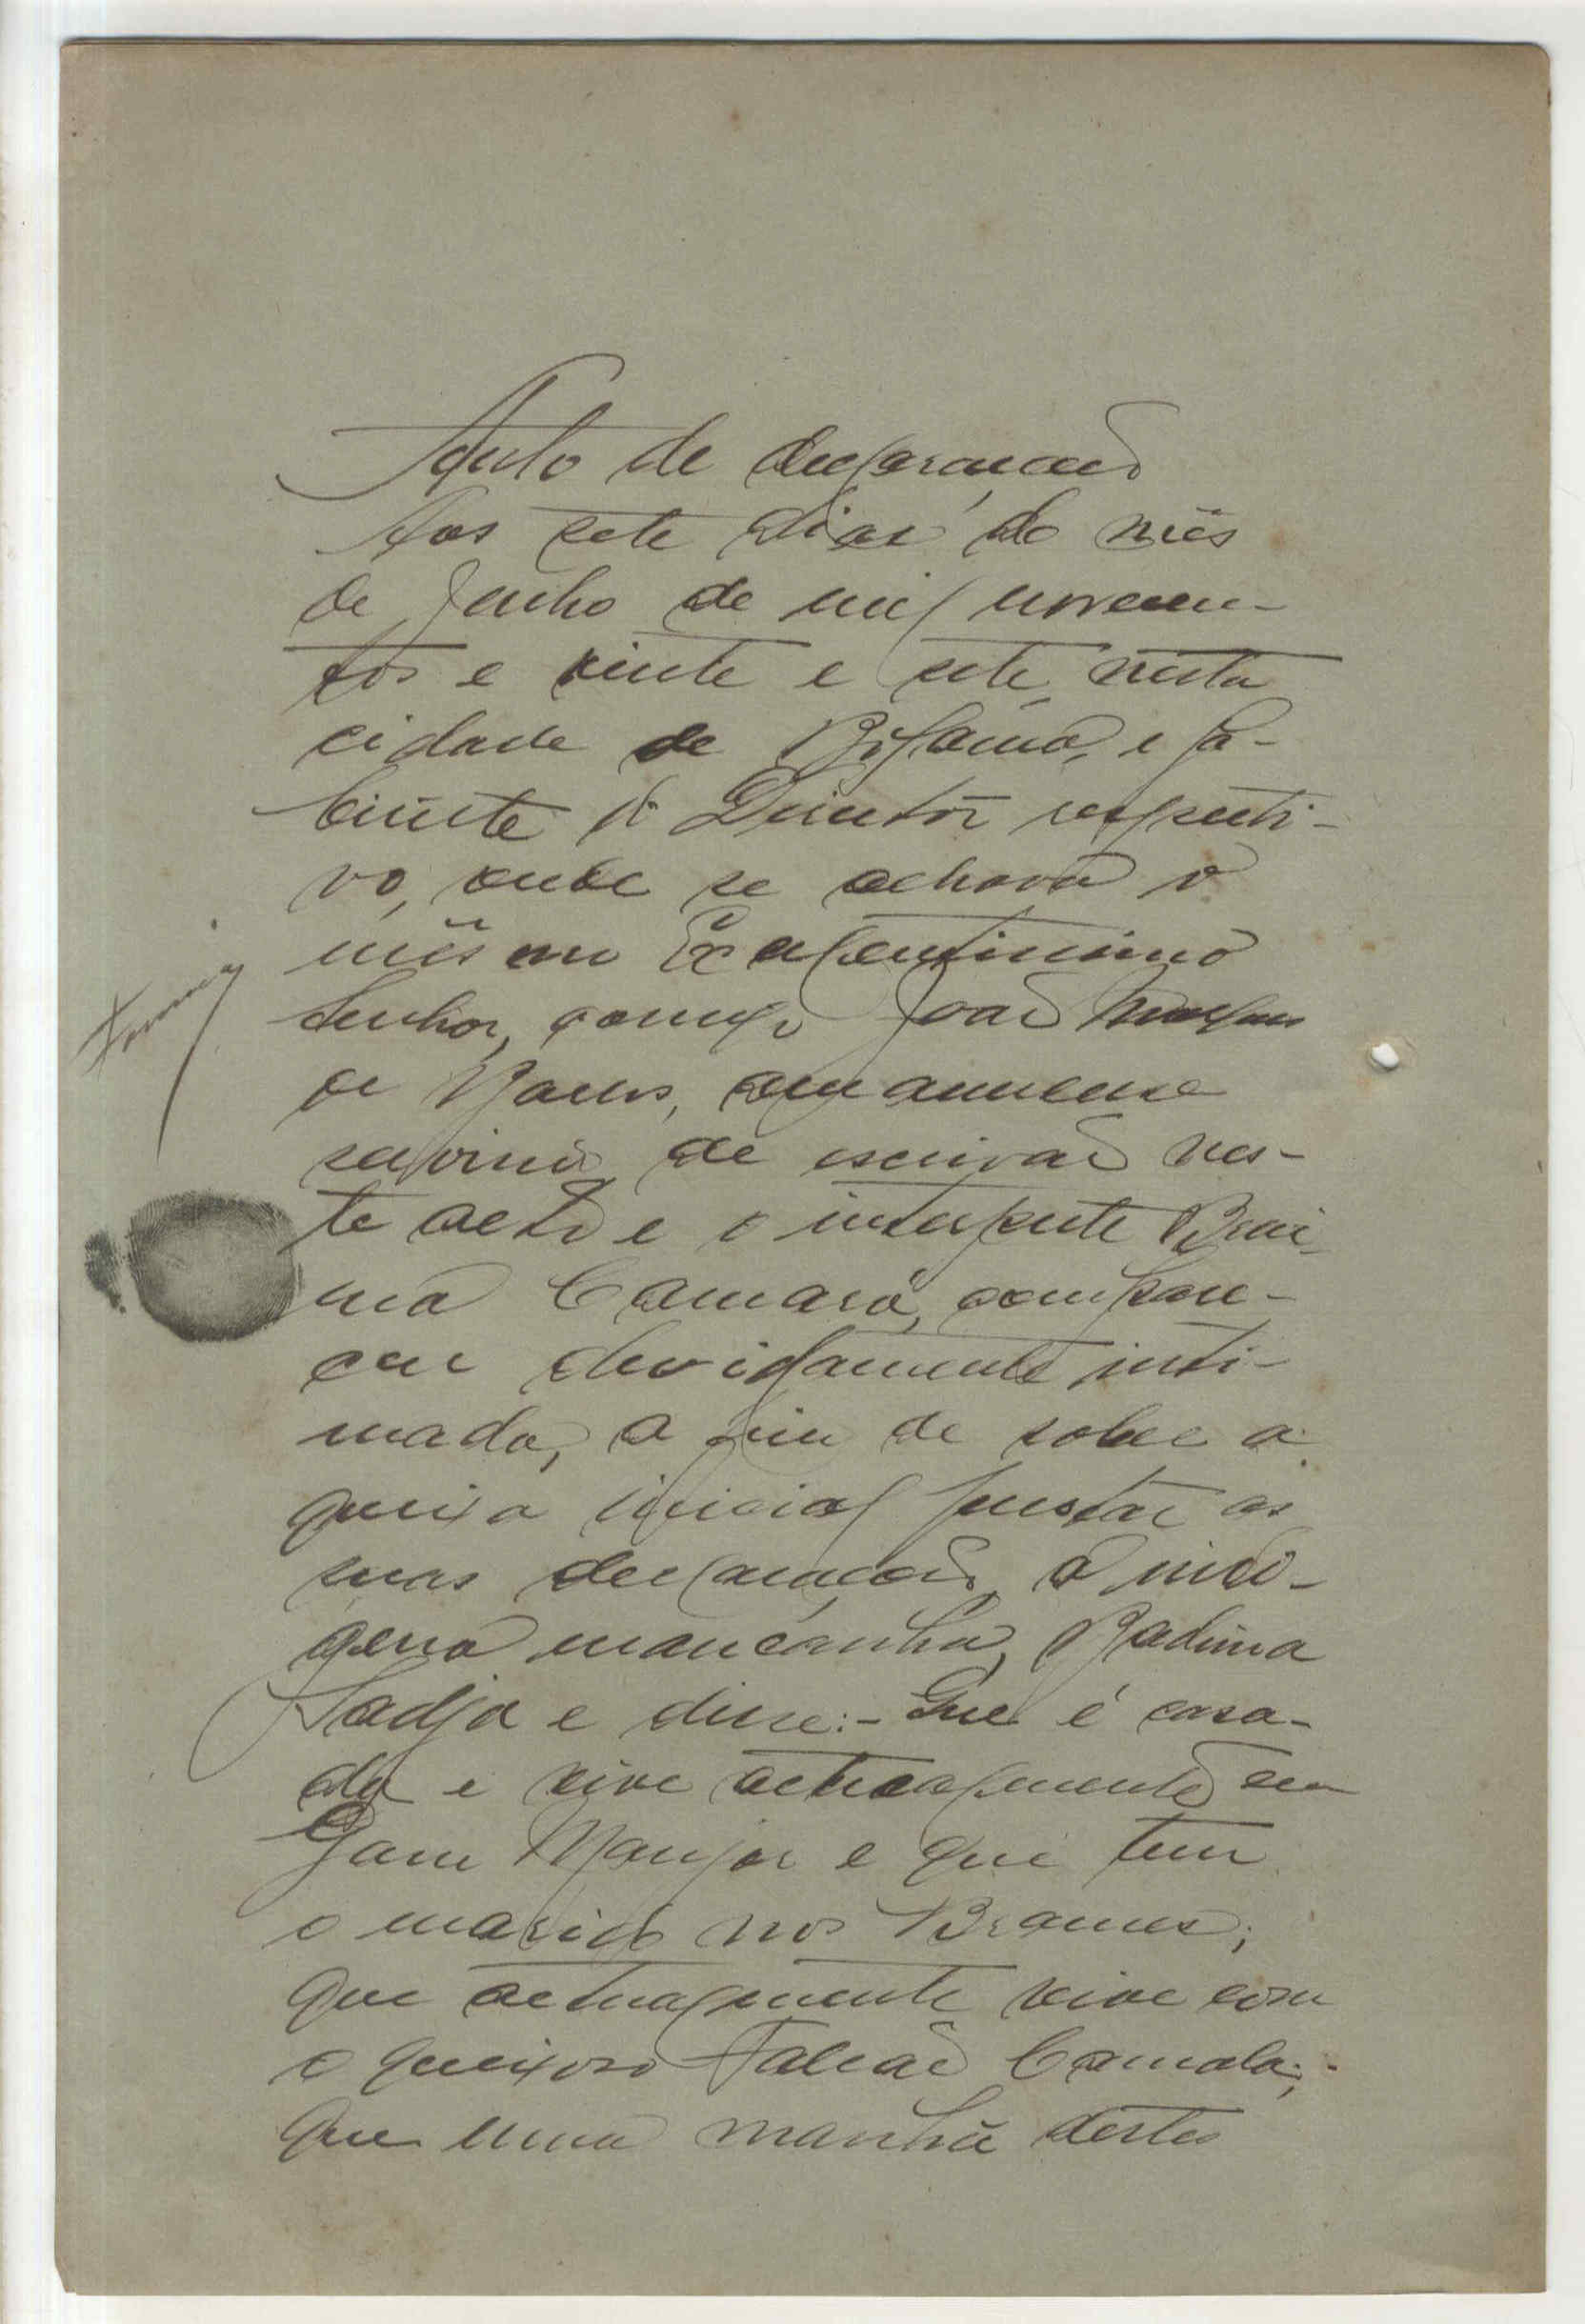 Auto de declaração
Aos sete dias do mês
de Junho de mil novecen-
tos e vinte e sete, nesta
cidade de Bolama, e ga-
binete do Director respecti-
vo, onde se achava o
mêsmo Excelentissimo
Senhor, comigo João
de Barros, amanuense
servindo de escrivão nes-
te acto e o interprete Brai-
ma Camará, compare-
ceu devidamente inti-
mada, a fim de sobre a
queixa inicial prestar as
suas declarações, a indi-
gena mancanha, Badima
Sadja e disse:- Que é casa-
da e vive actualmente em
Gam Manjor e que tem
o marido nos Brames;
que actualmente vive com
o queixoso Falcão Camala;
que uma manhã destes